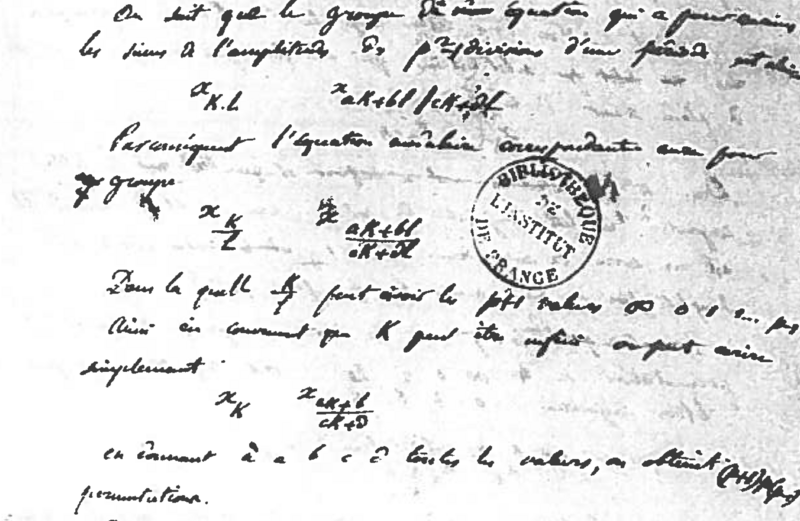 On sait que le groupe de une équation qui a pour racines
les sinus de l'amplitude des p² - 1 divisions d'une période est celui
x_{K.l} x_{aK+bl/cK+dl}
Par conséquent l'équation modulaire correspondante aura pour
groupe
x_{K/l} x_{(aK+bl)/(cK+dl)}
Dans laquelle K/l peut avoir les p+1 valeurs ∞ 0 1 2...
Ainsi en convenant que K peut être infini on peut écrire
simplement
x_K x_{(aK+b)/(cK+d)}
en donnant à a b c d toutes les valeurs, on obtient (p+1)p(p-1)
permutations.
BIBLIOTHÈQUE
DE
L'INSTITUT
DE FRANCE